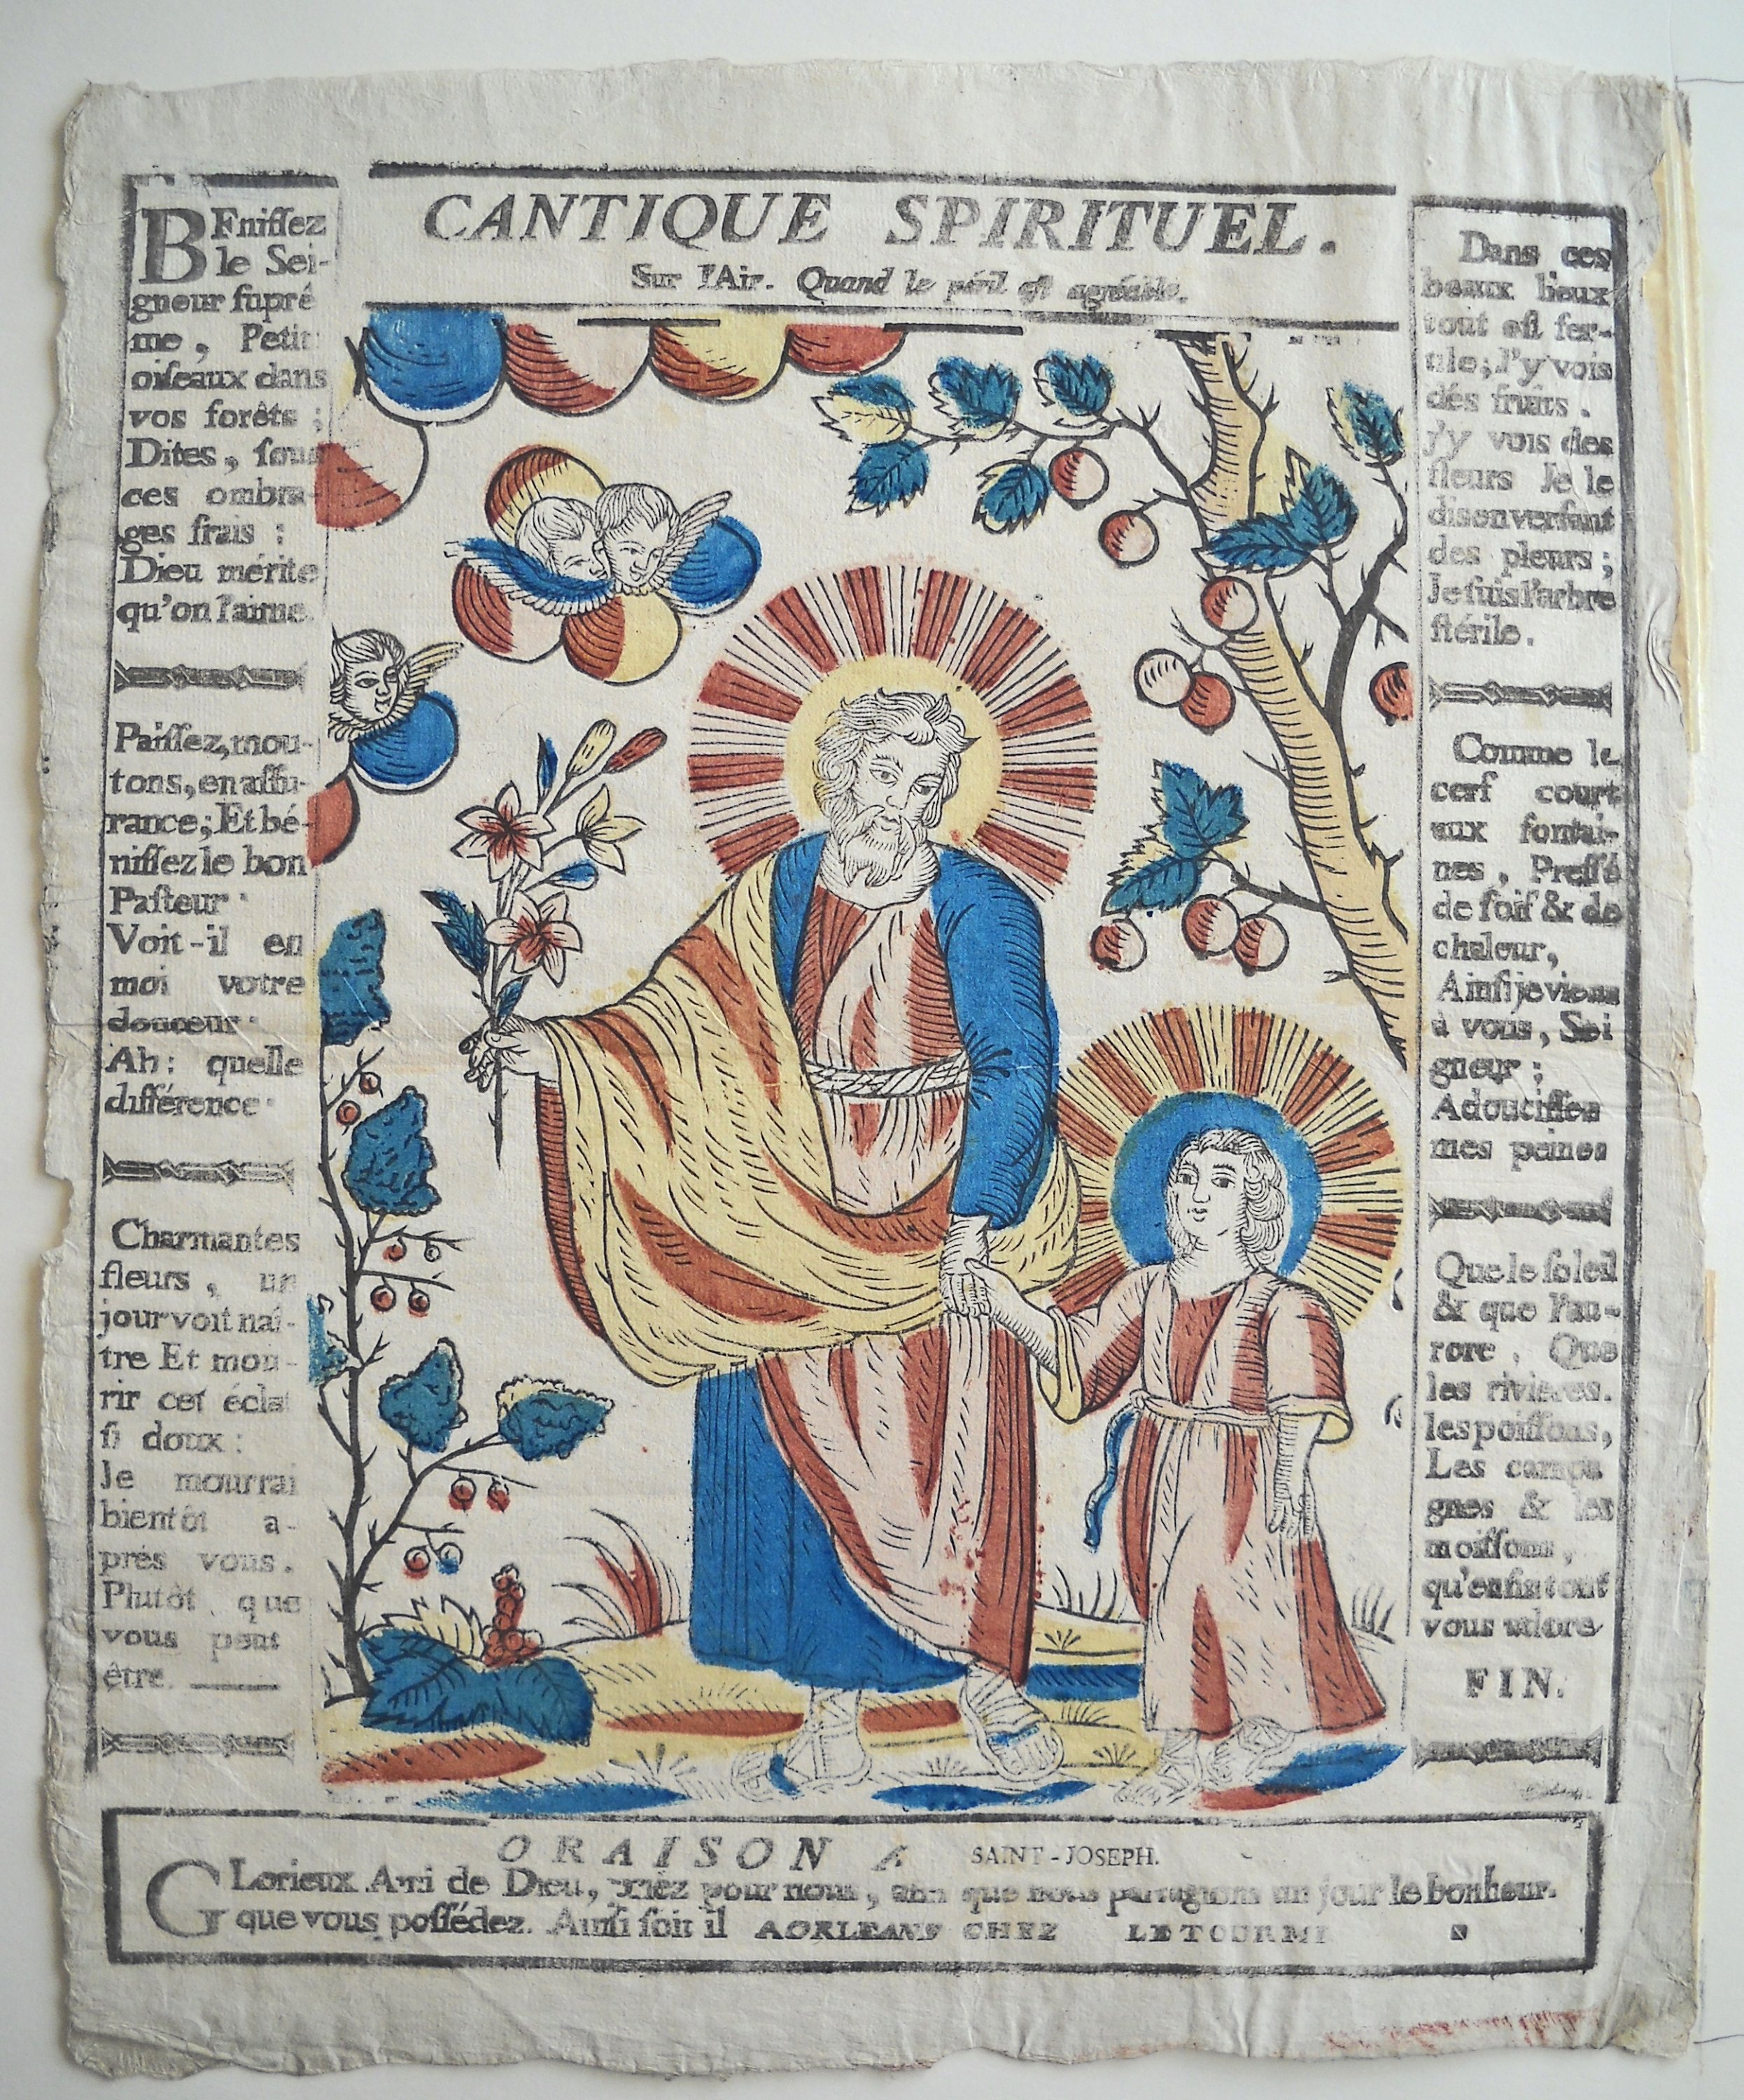 CANTIQUE SPIRITUEL.
Sur l'Air. Quand le péril est agréable.
BEnissez
le Sei-
gneur suprê
me, Petit
oiseaux dans
vos forêts ;
Dites, sous
ces ombra-
ges frais :
Dieu mérite
qu'on l'aime.
Paissez, mou-
tons, en assu-
rance; Et bé-
nissez le bon
Pasteur
Voit-il en
moi votre
douceur
Ah: quelle
différence
Charmantes
fleurs, un
jour voit naî-
tre Et mou-
rir cet éclat
si doux :
Je mourrai
bientôt a-
prés vous.
Plutôt que
vous peut
être.
Dans ces
beaux lieux
tout est fer-
tile; J'y vois
des fruits.
j'y vois des
fleurs Je le
dis en versant
des pleurs ;
Je suis l'arbre
stérile.
Comme le
cerf court
aux fontai-
nes, Pressé
de soif & de
chaleur,
Ainsi je viens
à vous, Sei
gneur ;
Adoucisses
mes peines
Que le soleil
& que l'au-
rore, Que
les rivieres.
les poissons,
Les campa
gnes & les
moissons,
qu'enfin tout
vous adore
FIN.
ORAISON A SAINT-JOSEPH.
GLorieux Ami de Dieu, priez pour nous, afin que nous partagions un jour le bonheur.
que vous possédez. Ainsi soit il AORLEANS CHEZ LETOURMI